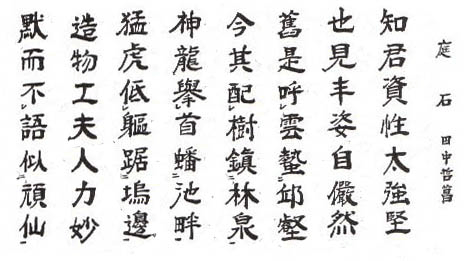 庭石 田中哲菖
知君資性太強堅
也見丰姿自儼然
舊是呼雲蟄邱壑
今其配樹鎭林泉
神龍擧首蟠池畔
猛虎低軀踞塢邊
造物工夫人力妙
默而不語似頑仙